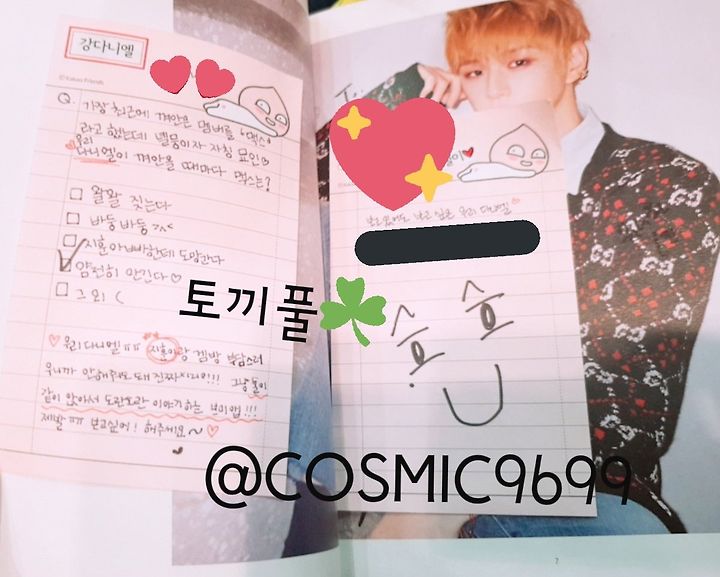 강다니엘
©Kakao Friends
Q. 가장 최근에 껴안은 멤버를 '맥스'
라고 했는데 멜뭉이자 자칭 묘인♡
우리
다니엘이 껴안을 때마다 맥스는?
□ 왈왈 짖는다
□ 바등바등
□ 지훈아빠한테 도망간다
☑ 얌전히 안긴다♡
□ 그 외 (
♡ 우리 다니엘 ㅠㅠ 지훈이랑 겜방 부담스러
우니까 안해줘도 돼 진짜 !!! 그냥 둘이
같이 앉아서 도란도란 이야기하는 브이앱!!!
제발 ㅠㅠ 보고싶어! 해주세요~♡
To.
보고있어도 보고 싶은 우리 다니엘
훈 훈
토끼풀☘
@COSMIC9699
7